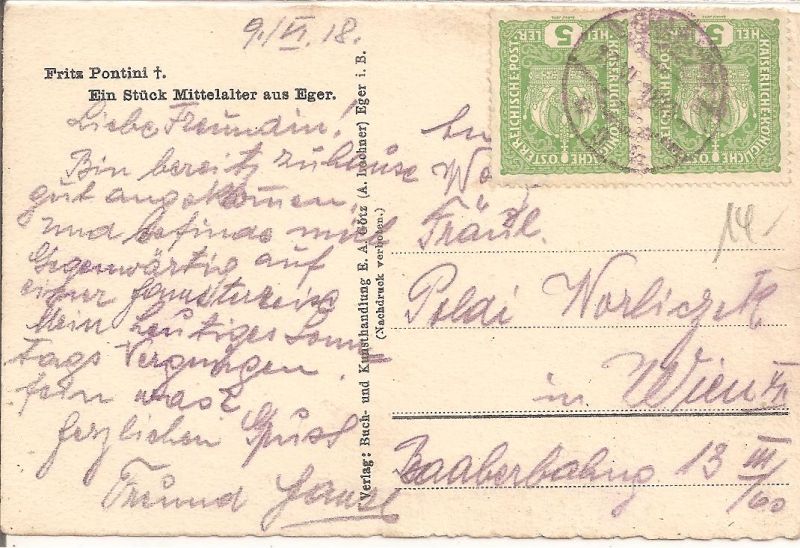 9./VI.18.
Fritz Pontini †.
Ein Stück Mittelalter aus Eger.
Liebe Freundin!
Bin bereitz zuhause
gut angekomen,
und befinde mich
Gegenwärtig auf
einer
Mein heutiges Sonn
tags Vergnügen.
fein was?
herzlichen Gruß
Freund
Verlag: Buch- und Kunsthandlung E. A. Götz (A. Lochner) Eger i. B.
(Nachdruck verboten.)
An
Fräul.
Poldi Worliczek
in Wien
13 III
/60
5 5
HEL- LER
KAISERLICHE KÖNIGLICHE
ÖSTERREICHISCHE POST
HEL- LER
KAISERLICHE KÖNIGLICHE
ÖSTERREICHISCHE POST
14.-